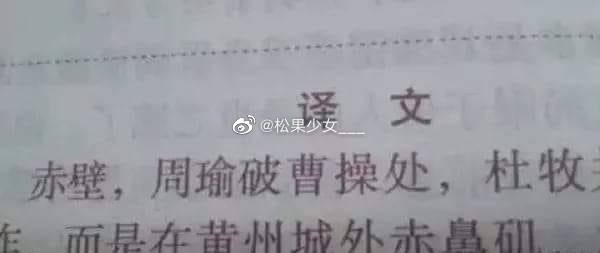 译 文
@松果少女___
赤壁，周瑜破曹操处，杜牧
而是在黄州城外赤鼻矶